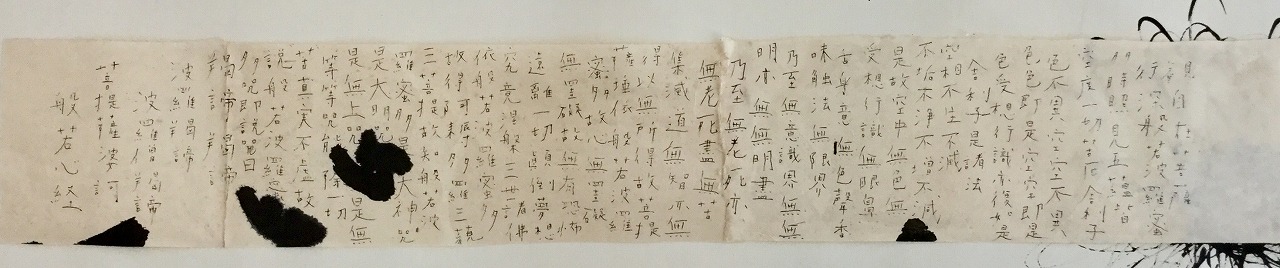 観自在菩薩
行深般若波羅蜜
多時照見五蘊皆
空度一切苦厄舎利子
色不異空空不異
色色即是空空即是
色受想行識亦復如是
舎利子是者法
空相不生不滅
不垢不浄不増不減
是故空中無色無
受想行識無眼鼻
舌身意無色聲香
味触法無眼界
乃至無意識界無無
明亦無無明盡
乃至無老死亦
無老死盡無苦
集滅道無智亦無
得以無所得故菩提
薩埵依般若波羅
蜜多故心無罣礙
無罣礙故無有恐怖
遠離一切顛倒夢想
究竟涅槃三世諸佛
依般若波羅蜜多
故得阿耨多羅三藐
三菩提故知般若波
羅蜜多是大神咒
是大明咒
是無上咒是無
等等咒能除一切
苦真実不虚故
説般若波羅蜜
多咒即説咒曰
羯帝羯帝
波羅羯諦
波羅僧羯諦
菩提薩婆訶
般若心経